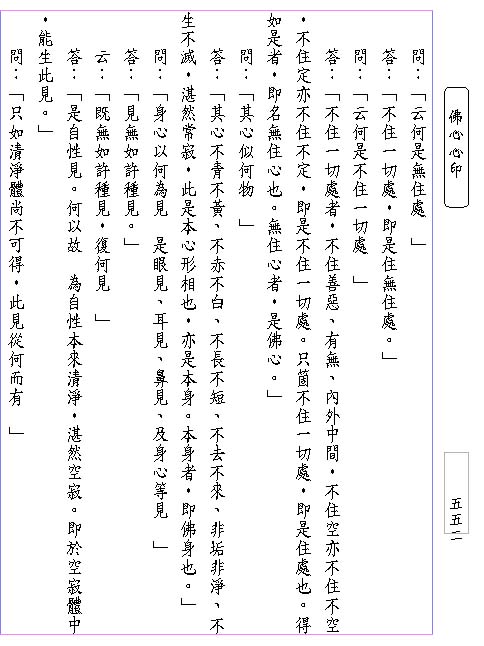 佛心心印
五五二
問：「云何是無住處　」
答：「不住一切處，即是住無住處。」
問：「云何是不住一切處　」
答：「不住一切處者，不住善惡、有無、內外中間，不住空亦不住不空
，不住定亦不住不定，即是不住一切處。只箇不住一切處，即是住處也。得
如是者，即名無住心也。無住心者，是佛心。」
問：「其心似何物　」
答：「其心不青不黃、不赤不白、不長不短、不去不來、非垢非淨、不
生不滅，湛然常寂，此是本心形相也，亦是本身。本身者，即佛身也。」
問：「身心以何為見　是眼見、耳見、鼻見、及身心等見　」
答：「見無如許種見。」
云：「既無如許種見，復何見　」
答：「是自性見。何以故　為自性本來清淨，湛然空寂。即於空寂體中
，能生此見。」
問：「只如清淨體尚不可得，此見從何而有　」